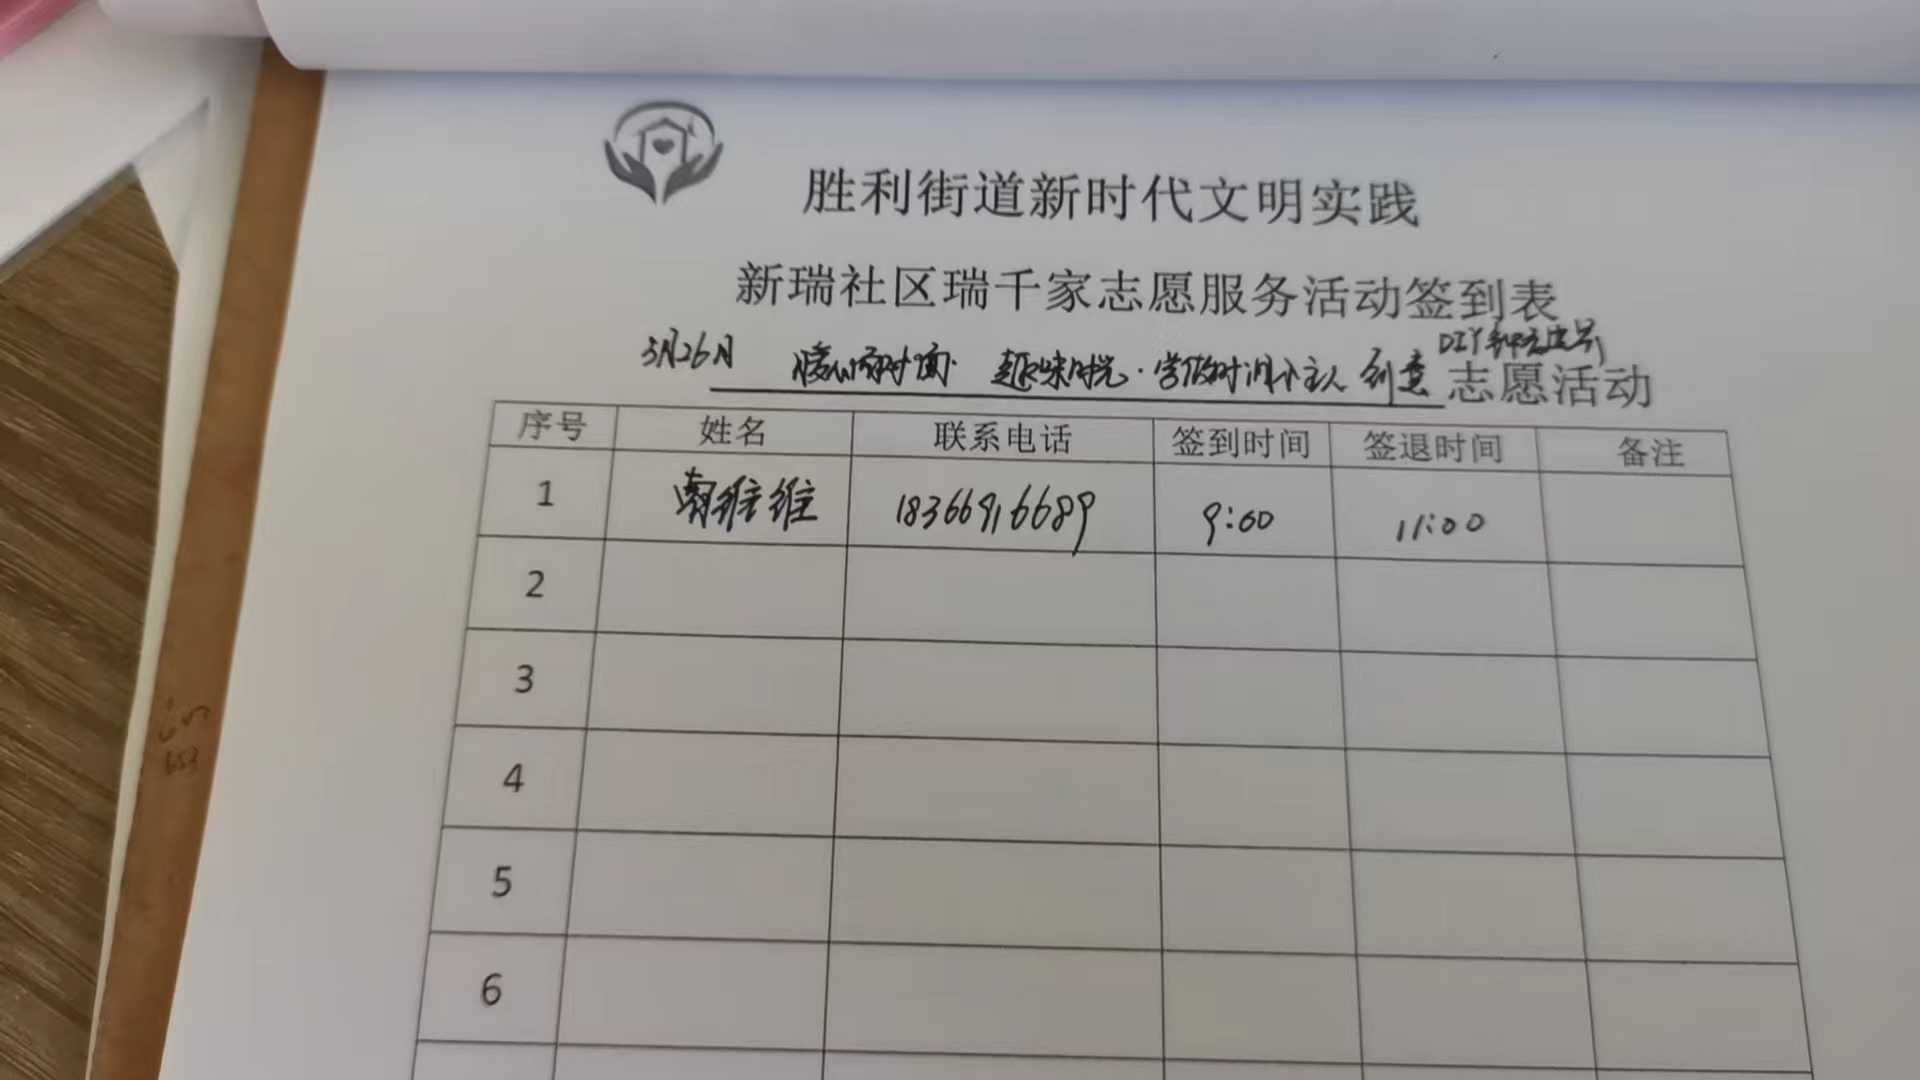 胜利街道新时代文明实践
新瑞社区瑞千家志愿服务活动签到表
DIY
3月26日 趣味时光·学做时间小主人 创意 志愿活动
序号 姓名 联系电话 签到时间 签退时间 备注
1 维维 18366916689 9:00 11:00
2
3
4
5
6